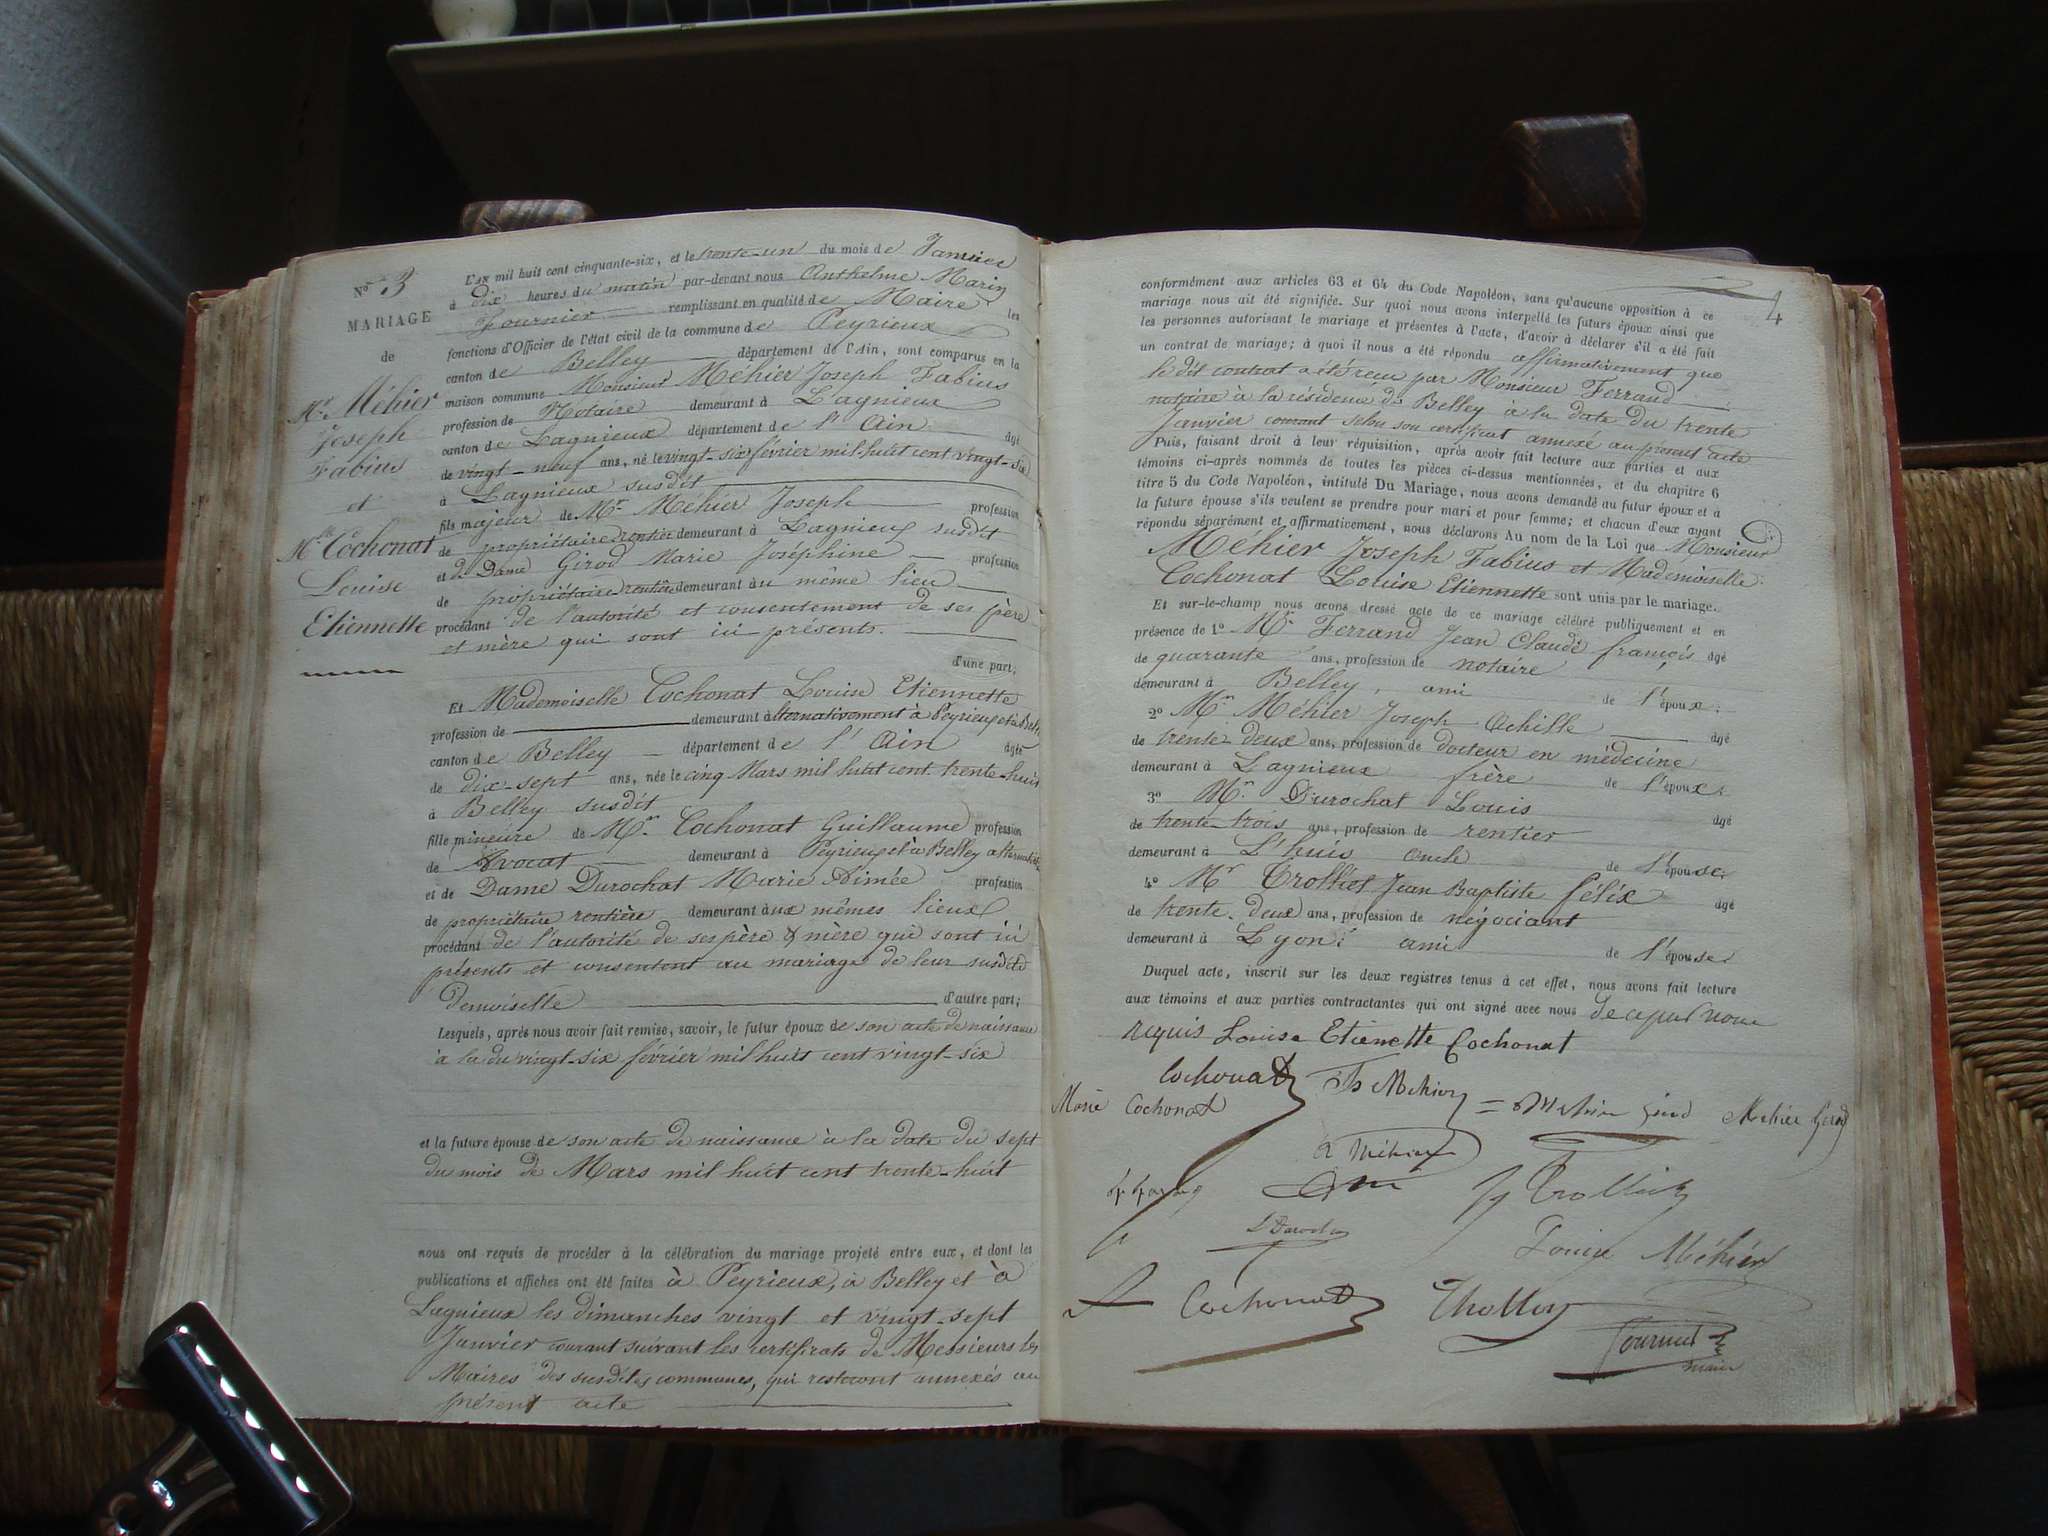 N° 3
MARIAGE
de
Mr. Méhier
Joseph
Fabius
et
Mlle Cochonat
Louise
Etiennette
L'AN mil huit cent cinquante-six, et le trente-un du mois de Janvier
à dix heures du matin par-devant nous Anthelme Marin
Fournier remplissant en qualité de Maire les
fonctions d'Officier de l'état civil de la commune de Peyrieux
canton de Belley département de l'Ain, sont comparus en la
maison commune Monsieur Méhier Joseph Fabius
profession de Notaire demeurant à Lagnieux
canton de Lagnieux département de l'Ain âgé
de vingt-neuf ans, né le vingt-six février mil huit cent vingt-six
à Lagnieux susdit
fils majeur de Mr. Méhier Joseph profession
de propriétaire rentier demeurant à Lagnieux susdit
et de Dame Girod Marie Joséphine profession
de propriétaire rentière demeurant au même lieu
procédant de l'autorité et consentement de ses père
et mère qui sont ici présents.
d'une part;
Et Mademoiselle Cochonat Louise Etiennette
profession de demeurant alternativement à Peyrieux et à Belley
canton de Belley département de l'Ain âgée
de dix-sept ans, née le cinq Mars mil huit cent trente-huit
à Belley susdit
fille mineure de Mr. Cochonat Guillaume profession
de Avocat demeurant à Peyrieux et à Belley
et de Dame Durochat Marie Aimée profession
de propriétaire rentière demeurant aux mêmes lieux
procédant de l'autorité de ses père & mère qui sont ici
présents et consentent au mariage de leur susdite
demoiselle d'autre part;
Lesquels, après nous avoir fait remise, savoir, le futur époux de son acte de naissance
à la du vingt-six février mil huit cent vingt-six
et la future épouse de son acte de naissance à la date du sept
du mois de Mars mil huit cent trente-huit
nous ont requis de procéder à la célébration du mariage projeté entre eux, et dont les
publications et affiches ont été faites à Peyrieux, à Belley et à
Lagnieux les dimanches vingt et vingt-sept
Janvier courant suivant les certificats de Messieurs les
Maires des susdites communes, qui resteront annexés au
présent acte
4
conformément aux articles 63 et 64 du Code Napoléon, sans qu'aucune opposition à ce
mariage nous ait été signifiée. Sur quoi nous avons interpellé les futurs époux ainsi que
les personnes autorisant le mariage et présentes à l'acte, d'avoir à déclarer s'il a été fait
un contrat de mariage; à quoi il nous a été répondu affirmativement que
le dit contrat a été reçu par Monsieur Ferrand
notaire à la résidence de Belley à la date du trente
Janvier courant selon son certificat annexé au présent acte
Puis, faisant droit à leur réquisition, après avoir fait lecture aux parties et aux
témoins ci-après nommés de toutes les pièces ci-dessus mentionnées, et du chapitre 6
titre 5 du Code Napoléon, intitulé Du Mariage, nous avons demandé au futur époux et à
la future épouse s'ils veulent se prendre pour mari et pour femme; et chacun d'eux ayant
répondu séparément et affirmativement, nous déclarons Au nom de la Loi que Monsieur
Méhier Joseph Fabius et Mademoiselle
Cochonat Louise Etiennette sont unis par le mariage.
Et sur-le-champ nous avons dressé acte de ce mariage célébré publiquement et en
présence de 1° Mr. Ferrand Jean Claude françois âgé
de quarante ans, profession de notaire
demeurant à Belley, ami de l'époux;
2° Mr. Méhier Joseph Achille âgé
de trente-deux ans, profession de docteur en médecine
demeurant à Lagnieux frère de l'époux;
3° Mr. Durochat Louis âgé
de trente-trois ans, profession de rentier
demeurant à L'huis oncle de l'épouse;
4° Mr Trolliet Jean Baptiste félix âgé
de trente-deux ans, profession de négociant
demeurant à Lyon ami de l'épouse
Duquel acte, inscrit sur les deux registres tenus à cet effet, nous avons fait lecture
aux témoins et aux parties contractantes qui ont signé avec nous de ce par nous
requis Louise Etienette Cochonat
Cochonat
Marie Cochonat
Méhier Girod
A Méhier
Trolliet
L Durochat
Louise Méhier
Cochonat
Fournier
maire